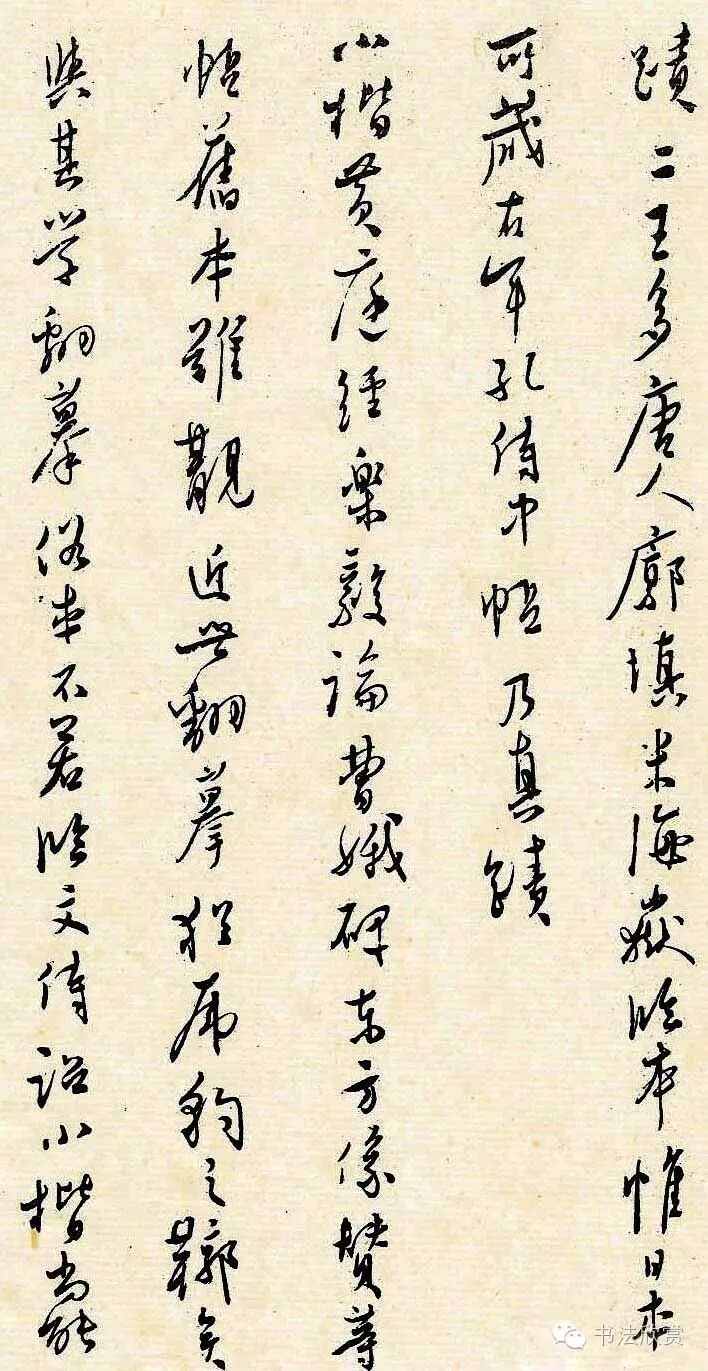 蹟二王多唐人廓填米海嶽臨本惟日本
所藏右軍孔侍中帖乃真蹟
小楷黄庭經樂毅論曹娥碑東方像贊等
帖舊本難覯近世翻摹猶虎豹之鞹矣
與其學翻摹俗本不若臨文待詔小楷尚能
书法欣赏